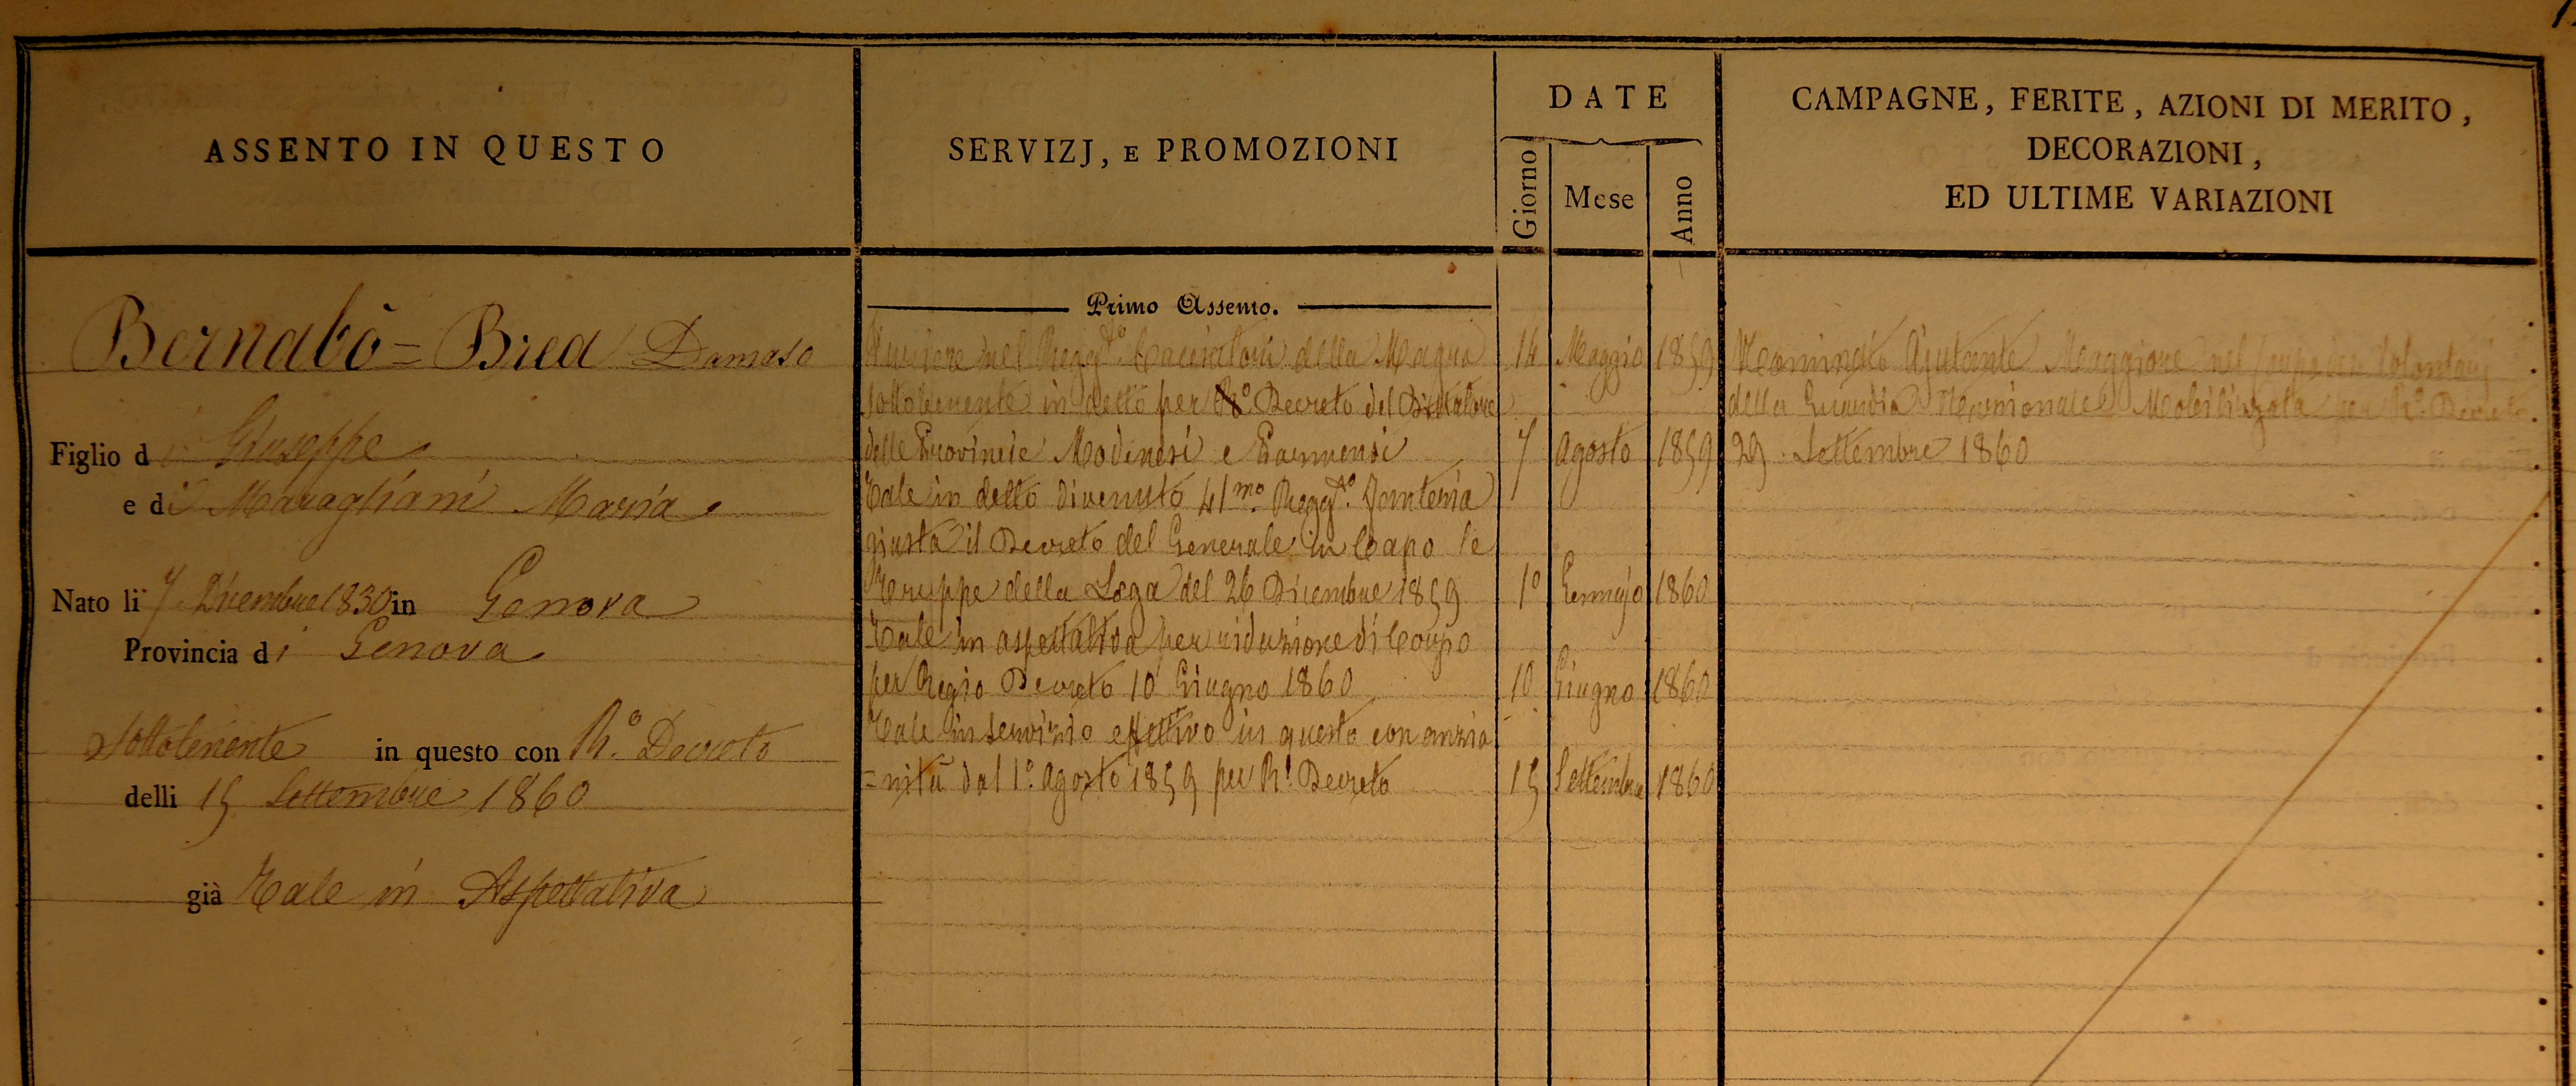 ASSENTO IN QUESTO
SERVIZJ, E PROMOZIONI
DATE
Giorno
Mese
Anno
CAMPAGNE, FERITE, AZIONI DI MERITO,
DECORAZIONI,
ED ULTIME VARIAZIONI
Bernabò=Brea Damaso
Figlio di Giuseppe
e di Maragliani Maria
Nato li 7 Dicembre 1830 in Genova
Provincia di Genova
Sottotenente in questo con R.º Decreto
delli 15 Settembre 1860
già Tale in Aspettativa
Primo Assento.
nel Reggto. Cacciatori della Magra 14 Maggio 1859
Sottotenente in detto per Rº. Decreto del Dittatore
delle Provincie Modenesi e Parmensi 7 Agosto 1859
Tale in detto divenuto 41mo. Reggto. Fanteria
giusta il Decreto del Generale in Capo le
Truppe della Lega del 26 Dicembre 1859 1º Gennajo 1860
Tale in aspettativa per riduzione di Corpo
per Regio Decreto 10 Giugno 1860 10 Giugno 1860
Tale in servizio effettivo in questo con anzia
=nità dal 1º. Agosto 1859 per R! Decreto 15 Settembre 1860
Nominato Ajutante Maggiore nel Corpo dei Volontarj
della Guardia Nazionale Mobilizzata per Rº. Decreto
29 Settembre 1860